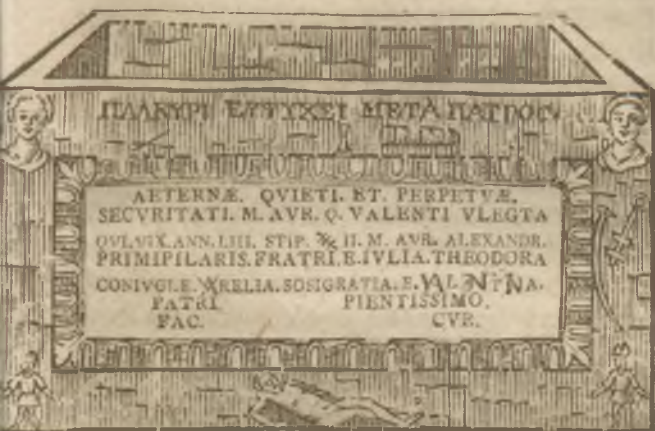 ΠΑΛΚΥΡΙ ΕΥΨΥΧΕΙ ΜΕΤΑ ΠΑΤΡΟΣ
AETERNÆ. QVIETI. ET. PERPETVÆ.
SECVRITATI. M. AVR. Q. VALENTI VLEGTA
QVI.VIX. ANN. LIII. STIP. II. M. AVR. ALEXANDR.
PRIMIPILARIS. FRATRI. E. IVLIA. THEODORA
CONIVGI. E. RELIA. SOSIGRATIA. E.
PATRI PIENTISSIMO.
FAC. CVR.